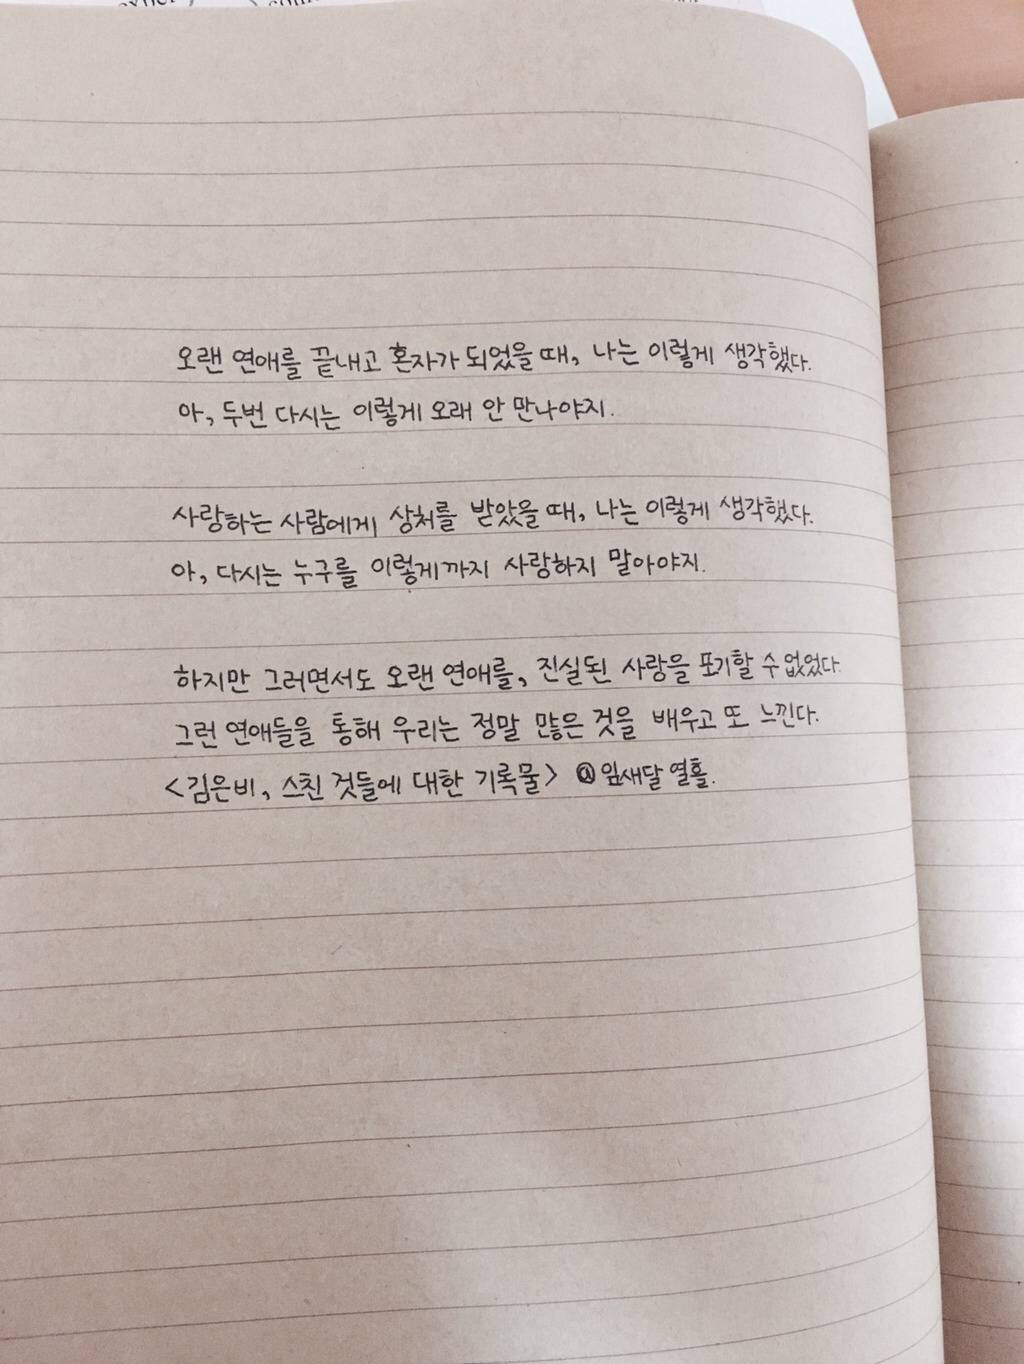 오랜 연애를 끝내고 혼자가 되었을 때, 나는 이렇게 생각했다.
아, 두번 다시는 이렇게 오래 안 만나야지.
사랑하는 사람에게 상처를 받았을 때, 나는 이렇게 생각했다.
아, 다시는 누구를 이렇게까지 사랑하지 말아야지.
하지만 그러면서도 오랜 연애를, 진실된 사랑을 포기할 수 없었다.
그런 연애들을 통해 우리는 정말 많은 것을 배우고 또 느낀다.
<김은비, 스친 것들에 대한 기록물> @잎새달 열흘.